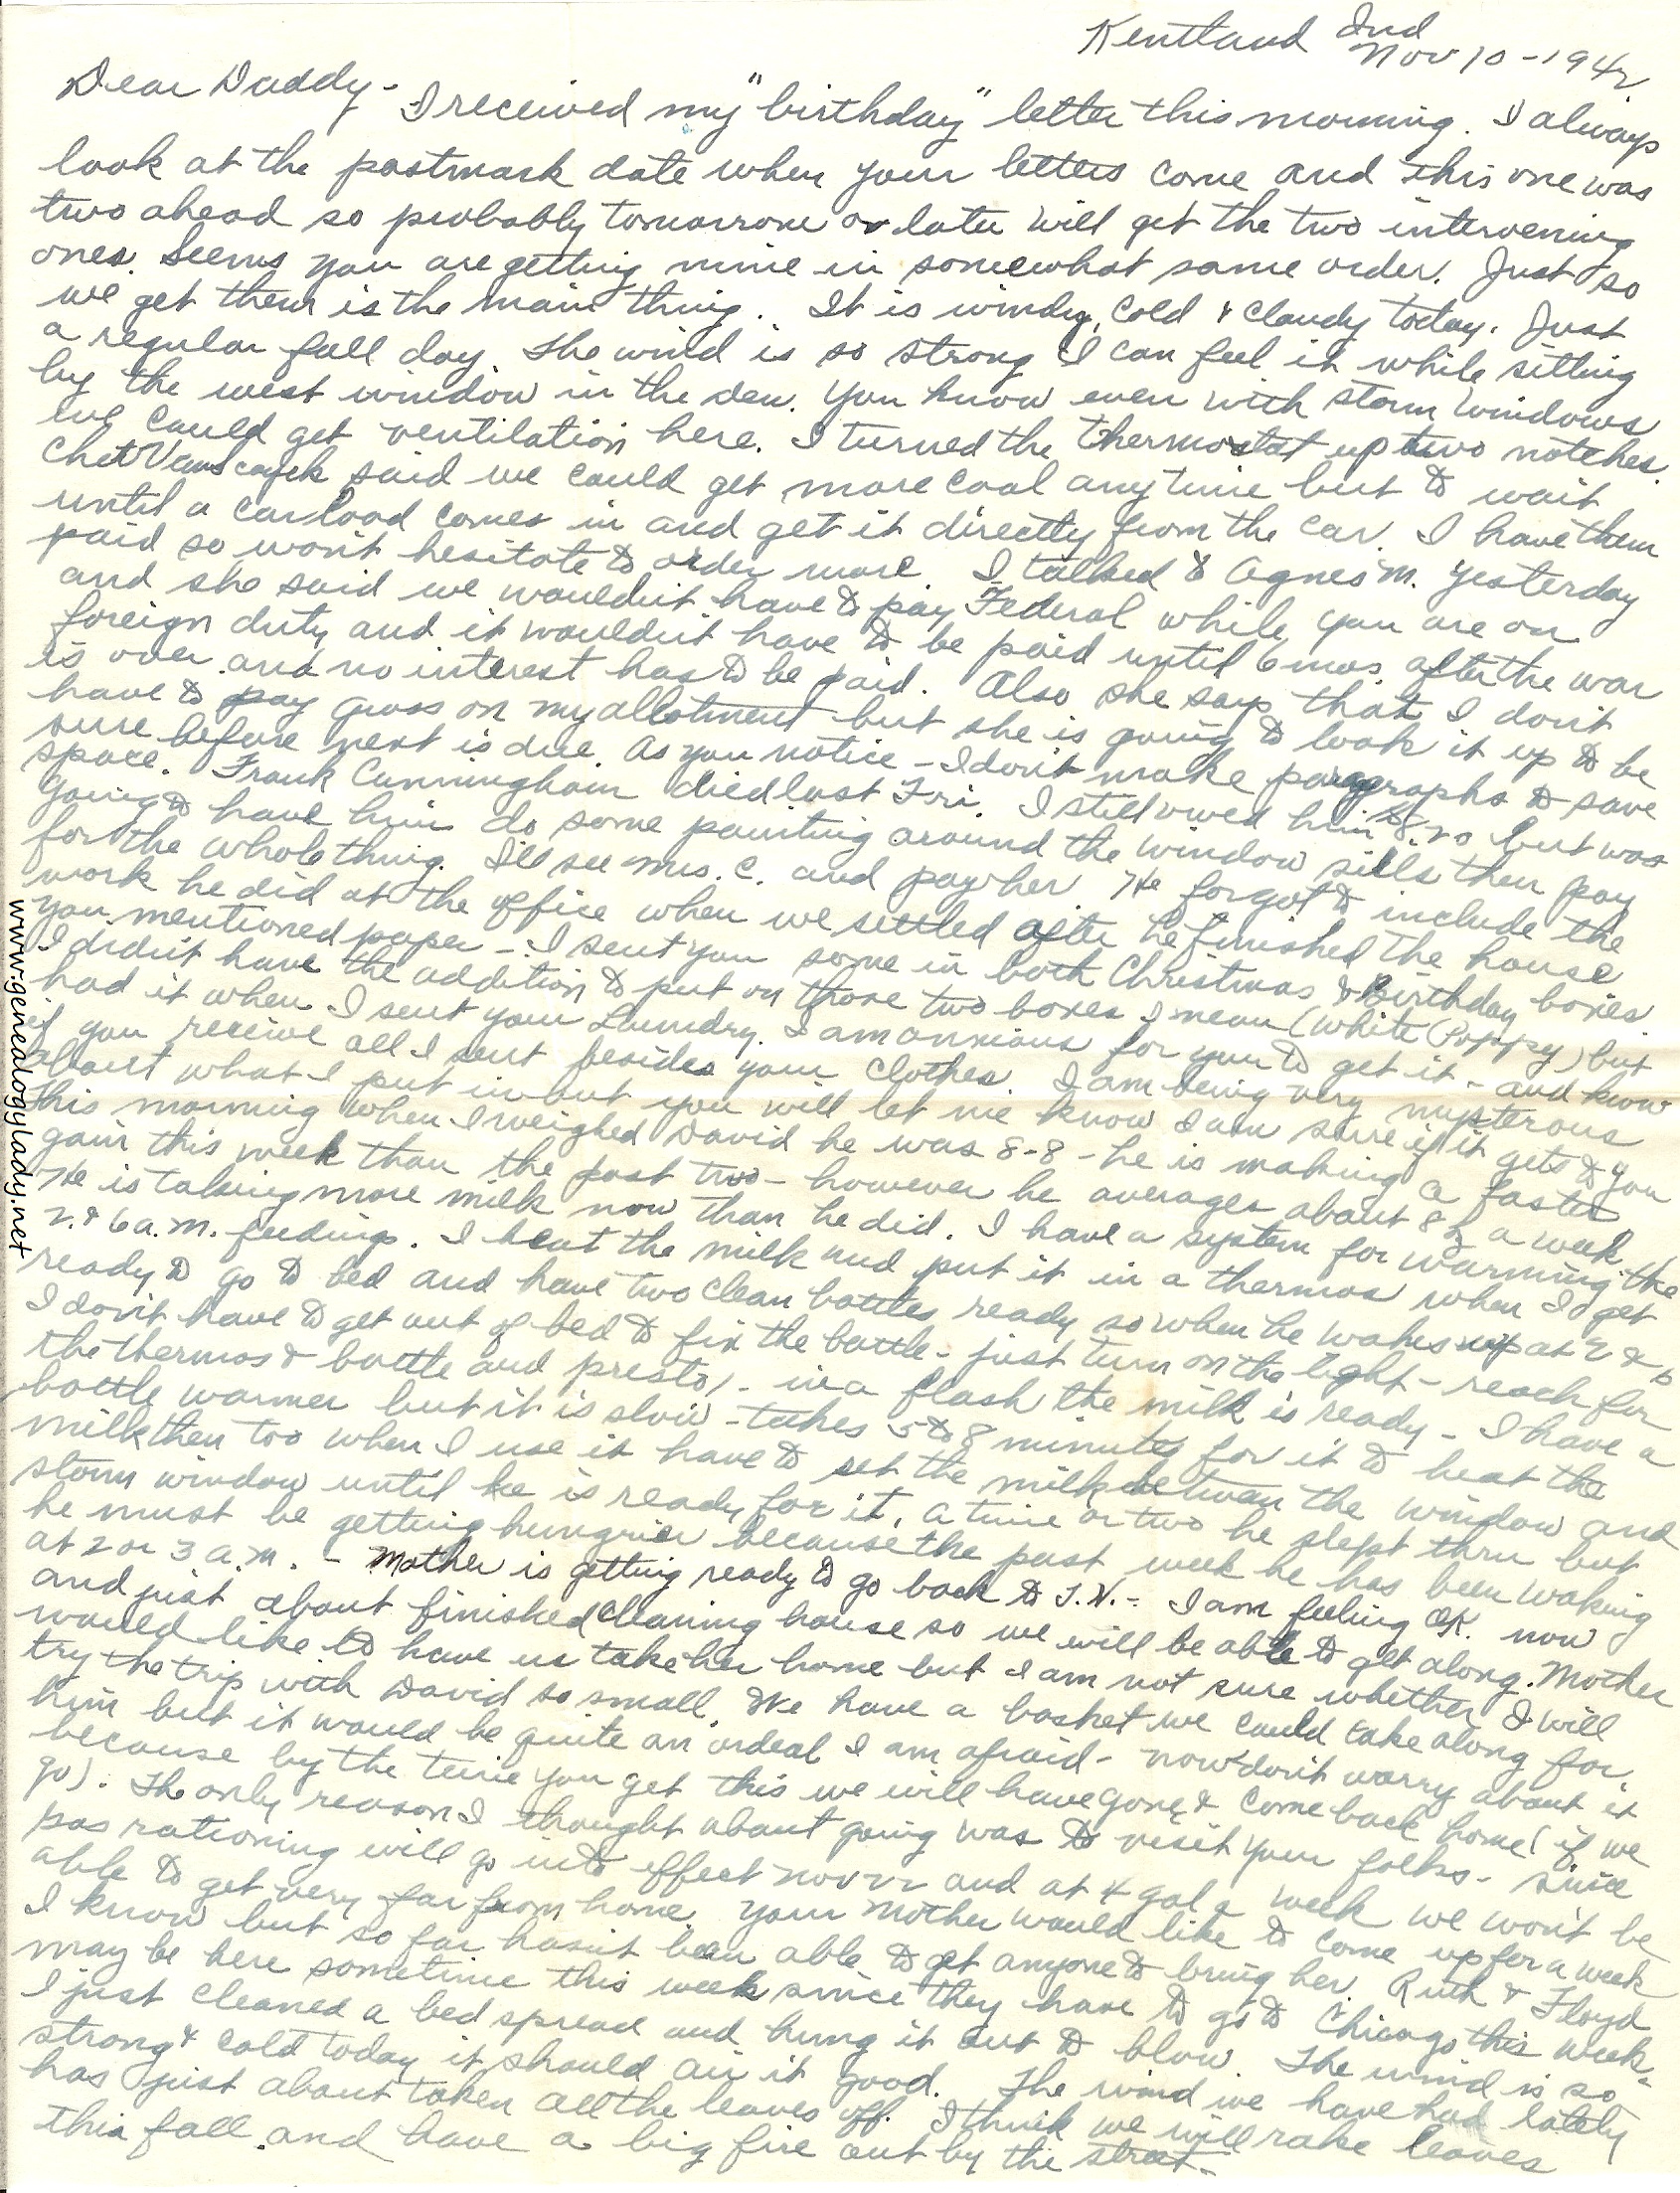 Kentland Ind
Nov 10 - 1942.
Dear Daddy - I received my "birthday" letter this morning. I always
look at the postmark date when your letters come and this one was
two ahead so probably tomorrow or later will get the two intervening
ones. Seems you are getting mine in somewhat same order. Just so
we get them is the main thing. It is windy, cold & cloudy today. Just
a regular fall day. The wind is so strong I can feel it while sitting
by the west window in the den. You know even with storm windows
we could get ventilation here. I turned the thermostat up two notches.
Chet said we could get more coal anytime but to wait
until a carload comes in and get it directly from the car. I have them
paid so won't hesitate to order more. I talked to Agnes M. yesterday
and she said we wouldn't have to pay Federal while you are on
foreign duty and it wouldn't have to be paid until 6 mos. after the war
is over and no interest has to be paid. Also she says that I don't
have to pay gross on my allotment but she is going to look it up to be
sure before next is due. As you notice - I don't make paragraphs to save
space. Frank Cunningham died last Fri. I still owed him $8.20 but was
going to have him do some painting around the window sills then pay
for the whole thing. I'll see Mrs. C. and pay her. He forgot to include the
work he did at the office when we settled after he finished the house
You mentioned paper - I sent you some in both Christmas & Birthday boxes.
I didn't have the addition to put on those two boxes I mean (White Poppy) but
had it when I sent your Laundry. I am anxious for you to get it - and know
if you receive all I sent besides your clothes. I am being very mysterous
about what I put in but you will let me know I am sure if it gets to you
This morning when I weighed David he was 8-8 - he is making a faster
gain this week than the past two - however he averages about 8 oz a week.
He is taking more milk now than he did. I have a system for warming the
2 & 6 a.m. feedings. I heat the milk and put it in a thermos when I get
ready to go to bed and have two clean bottles ready so when he wakes up at 2 & 6
I don't have to get out of bed to fix the bottle - just turn on the light - reach for
the thermos & bottle and presto! - in a flash the milk is ready - I have a
bottle warmer but it is slow - takes 5 to 8 minutes for it to heat the
milk then too when I use it have to set the milk between the window and
storm window until he is ready for it. A time or two he slept thru but
he must be getting hungrier because the past week he has been waking
at 2 or 3 a.m. - Mother is getting ready to go back to T.H. - I am feeling OK. now
and just about finished cleaning house so we will be able to get along. Mother
would like to have us take her home but I am not sure whether I will
try the trip with David so small. We have a basket we could take along for
him but it would be quite an ordeal I am afraid - now don't worry about it
because by the time you get this we will have gone & come back home (if we
go). The only reason I thought about going was to visit your folks - since
gas rationing will go into effect Nov 22 and at 4 gal a week we won't be
able to get very far from home. Your Mother would like to come up for a week
I know but so far hasn't been able to get anyone to bring her. Ruth & Floyd
may be here sometime this week since they have to go to Chicago this week.
I just cleaned a bed spread and hung it out to blow. The wind is so
strong & cold today it should air it good. The wind we have had lately
has just about taken all the leaves off. I think we will rake leaves
this fall and have a big fire out by the street. -
www.genealogylady.net